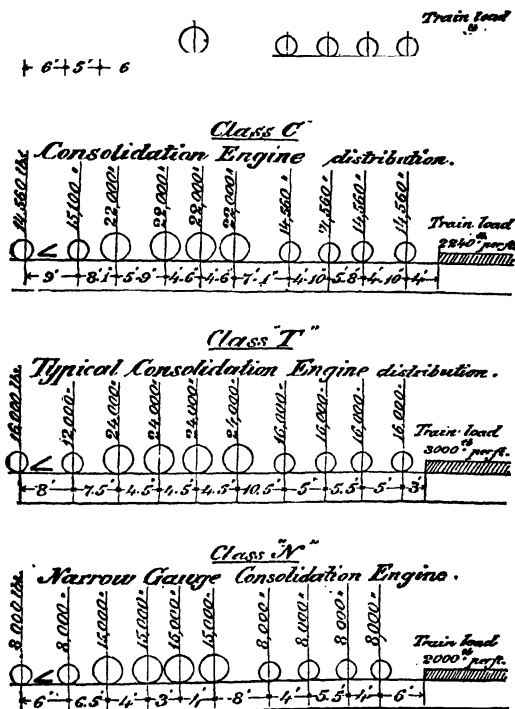 Train load
lb
6' 5' 6
Class "C"
Consolidation Engine distribution.
14,560 lbs. 15,100" 22,000" 22,000" 22,000" 22,000" 14,560" 14,560" 14,560" 14,560"
Train load
2240 lb per ft.
9' 8'1" 5'9" 4'6" 4'6" 7'1" 4'10" 5'8" 4'10" 4'
Class "T"
Typical Consolidation Engine distribution.
16,000 lbs. 12,000" 24,000" 24,000" 24,000" 24,000" 16,000" 16,000" 16,000" 16,000"
Train load
3000 lb per ft.
8' 7.5' 4.5' 4.5' 4.5' 10.5' 5' 5.5' 5' 3'
Class "N"
Narrow Gauge Consolidation Engine.
8,000 lbs. 8,000" 15,000" 15,000" 15,000" 15,000" 8,000" 8,000" 8,000" 8,000"
Train load
2000 lb per ft.
6' 6.5' 4' 3' 4' 8' 4' 5.5' 4' 6'